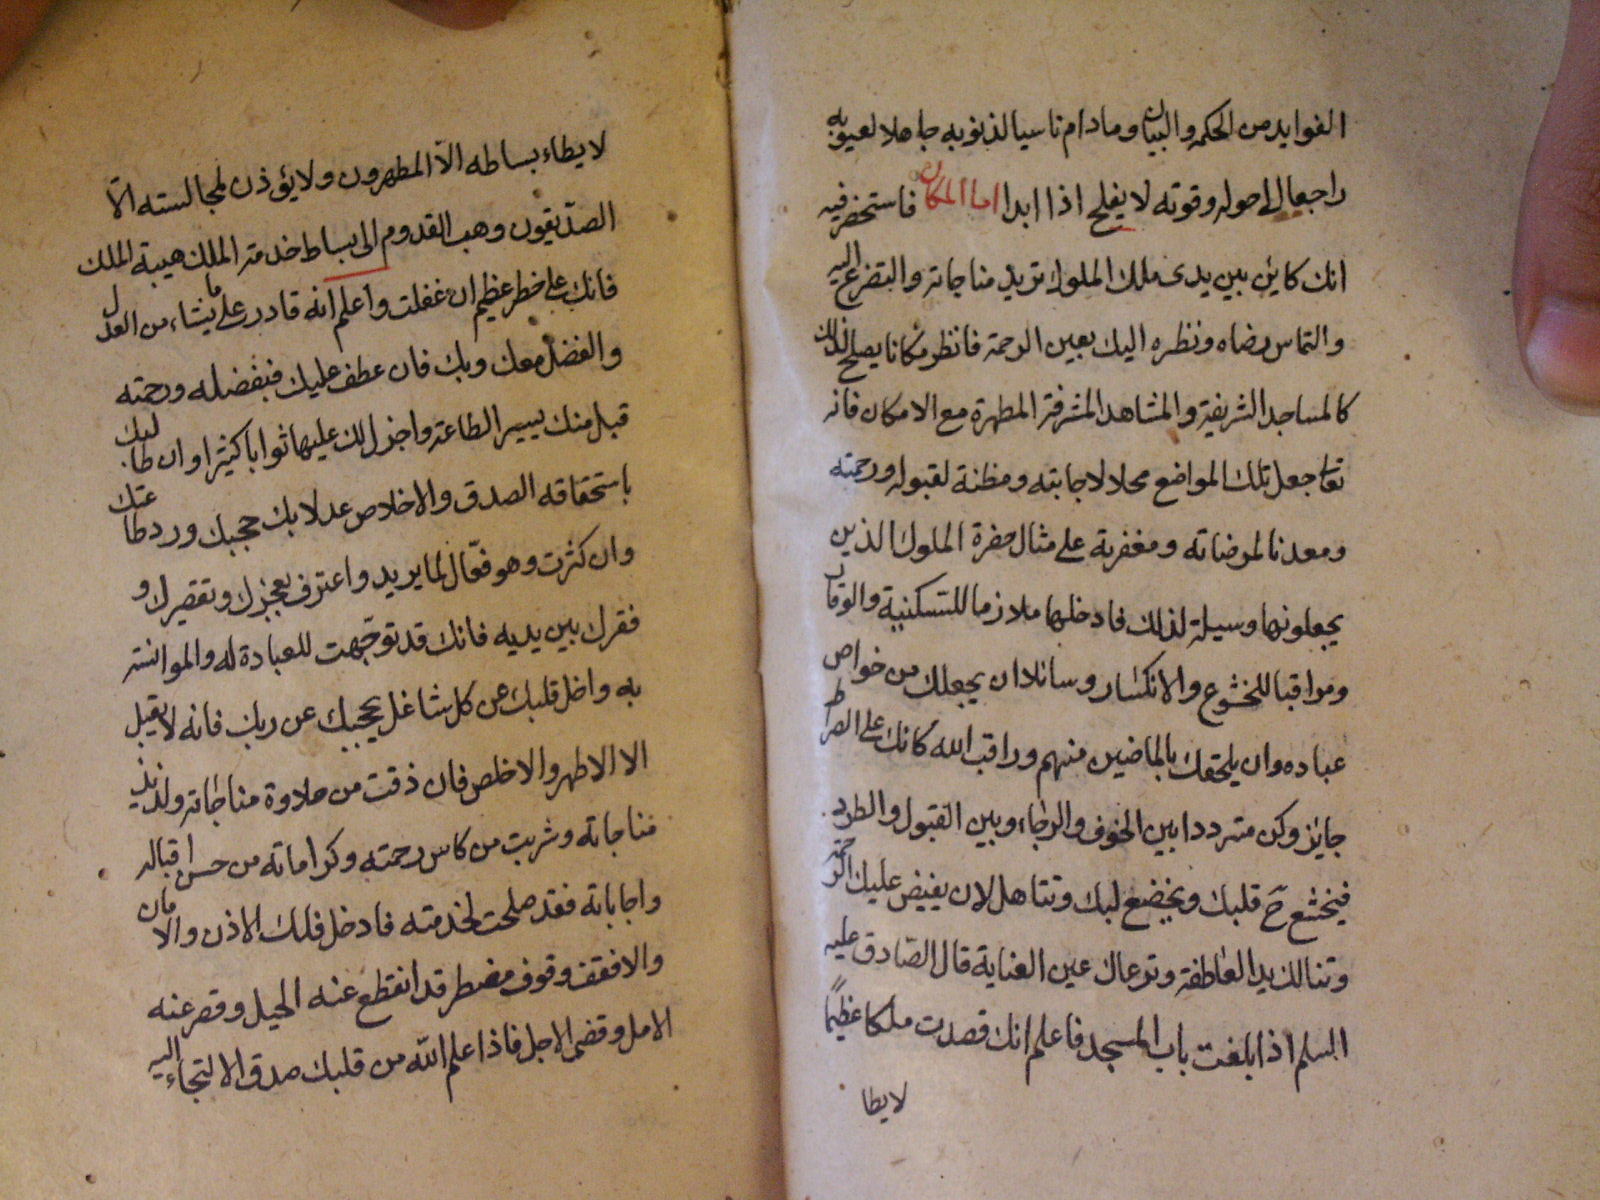 الفوايد من الحكمة والبيان وما دام ناسيا لذنوبه جاهلا لعيوبه
راجعا الى حوله وقوته لا يفلح اذا ابدا اما المكان فاستحضر فيه
انك كاين بين يدى ملك الملوك تريد مناجاته والتضرع اليه
والتماس رضاه ونظره اليك بعين الرحمة فانظر مكانا يصلح لذلك
كالمساجد الشريفة والمشاهد المشرفة المطهرة مع الامكان فانه
تعا جعل تلك المواضع محلا لاجابته ومظنة لقبوله ورحمته
ومعدنا لمرضاته ومغفرته على مثال حضرة الملوك الذين
يجعلونها وسيلة لذلك فادخلها ملازما للتسكنية والوقار
ومراقبا للخشوع والانكسار وسائلا ان يجعلك من خواص
عباده وان يلحقك بالماضين منهم وراقب الله كانك على الصراط
جايز وكن مترددا بين الخوف والرجاء وبين القبول والطرد
فيخشع ح قلبك ويخضع لبك وتتاهل لان يفيض عليك الرحمة
وتنالك يد العاطفة وترعاك عين العناية قال الصادق عليه
السلم اذا بلغت باب المسجد فاعلم انك قصدت ملكا عظيمًا
لا يطا
لا يطاء بساطه الآ المطهرون ولا يؤذن لمجالسته الآ
الصدّيقون وهب القدوم الى بساط خدمة الملك هيبة الملك
فانك على خطر عظيم ان غفلت واعلم انه قادر على ما يشاء من العدل
والفضل معك وبك فان عطف عليك فبفضله ورحمته
قبل منك يسير الطاعة واجزل لك عليها ثوابا كثيرا وان طالبك
باستحقاقه الصدق والاخلاص عدلا بك حجبك ورد طاعتك
وان كثرت وهو فعّال لما يريد واعترف بعجزك وتقصيرك و
فقرك بين يديه فانك قد توجّهت للعبادة له والموانسة
به واخل قلبك عن كل شاغل يحجبك عن ربك فانه لا يقبل
الا الاطهر والاخلص فان ذقت من حلاوة مناجاته ولذيذ
مناجاته وشربت من كاس رحمته وكراماته من حسن اقباله
واجاباته فقد صلحت لخدمته فادخل فلك الاذن والامان
والا فقف وقوف مضطر قد انقطع عنه الحيل وقصر عنه
الامل وقضى الاجل فاذا علم الله من قلبك صدق الالتجاء اليه